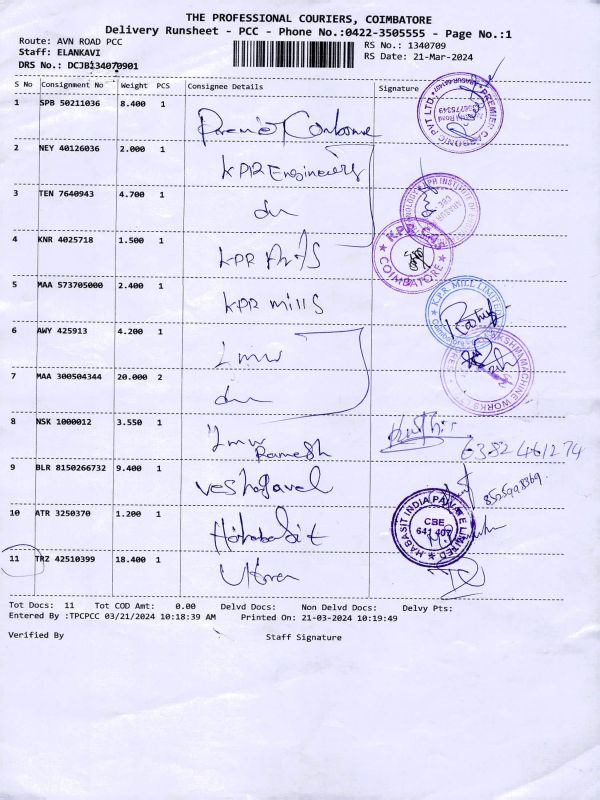 THE PROFESSIONAL COURIERS, COIMBATORE
Delivery Runsheet - PCC - Phone No.:0422-3505555 - Page No.:1
Route: AVN ROAD PCC
RS No.: 1340709
Staff: ELANKAVI
RS Date: 21-Mar-2024
DRS No.: DCJB134070901
S No Consignment No Weight PCS Consignee Details Signature
1 SPB 50211036 8.400 1
PREMIER CARBONIC PVT LTD.
2 NEY 40126036 2.000 1 KPR Engineers
3 TEN 7640943 4.700 1 du
4 KNR 4025718 1.500 1 KPR Arts
KPR CAS
COIMBATORE
5 MAA 573705000 2.400 1 KPR mills
K.P.R. MILL LIMITED
6 AWY 425913 4.200 1 Lmw
7 MAA 300504344 20.000 2 du
MACHINE WORKS
8 NSK 1000012 3.550 1 Lmw
Ramesh
6382461274
9 BLR 8150266732 9.400 1
8525998369
10 ATR 3250370 1.200 1 Habasit
HABASIT INDIA PRIVATE LIMITED
CBE
641 407
11 TRZ 42510399 18.400 1
Tot Docs: 11 Tot COD Amt: 0.00 Delvd Docs: Non Delvd Docs: Delvy Pts:
Entered By :TPCPCC 03/21/2024 10:18:39 AM Printed On: 21-03-2024 10:19:49
Verified By Staff Signature